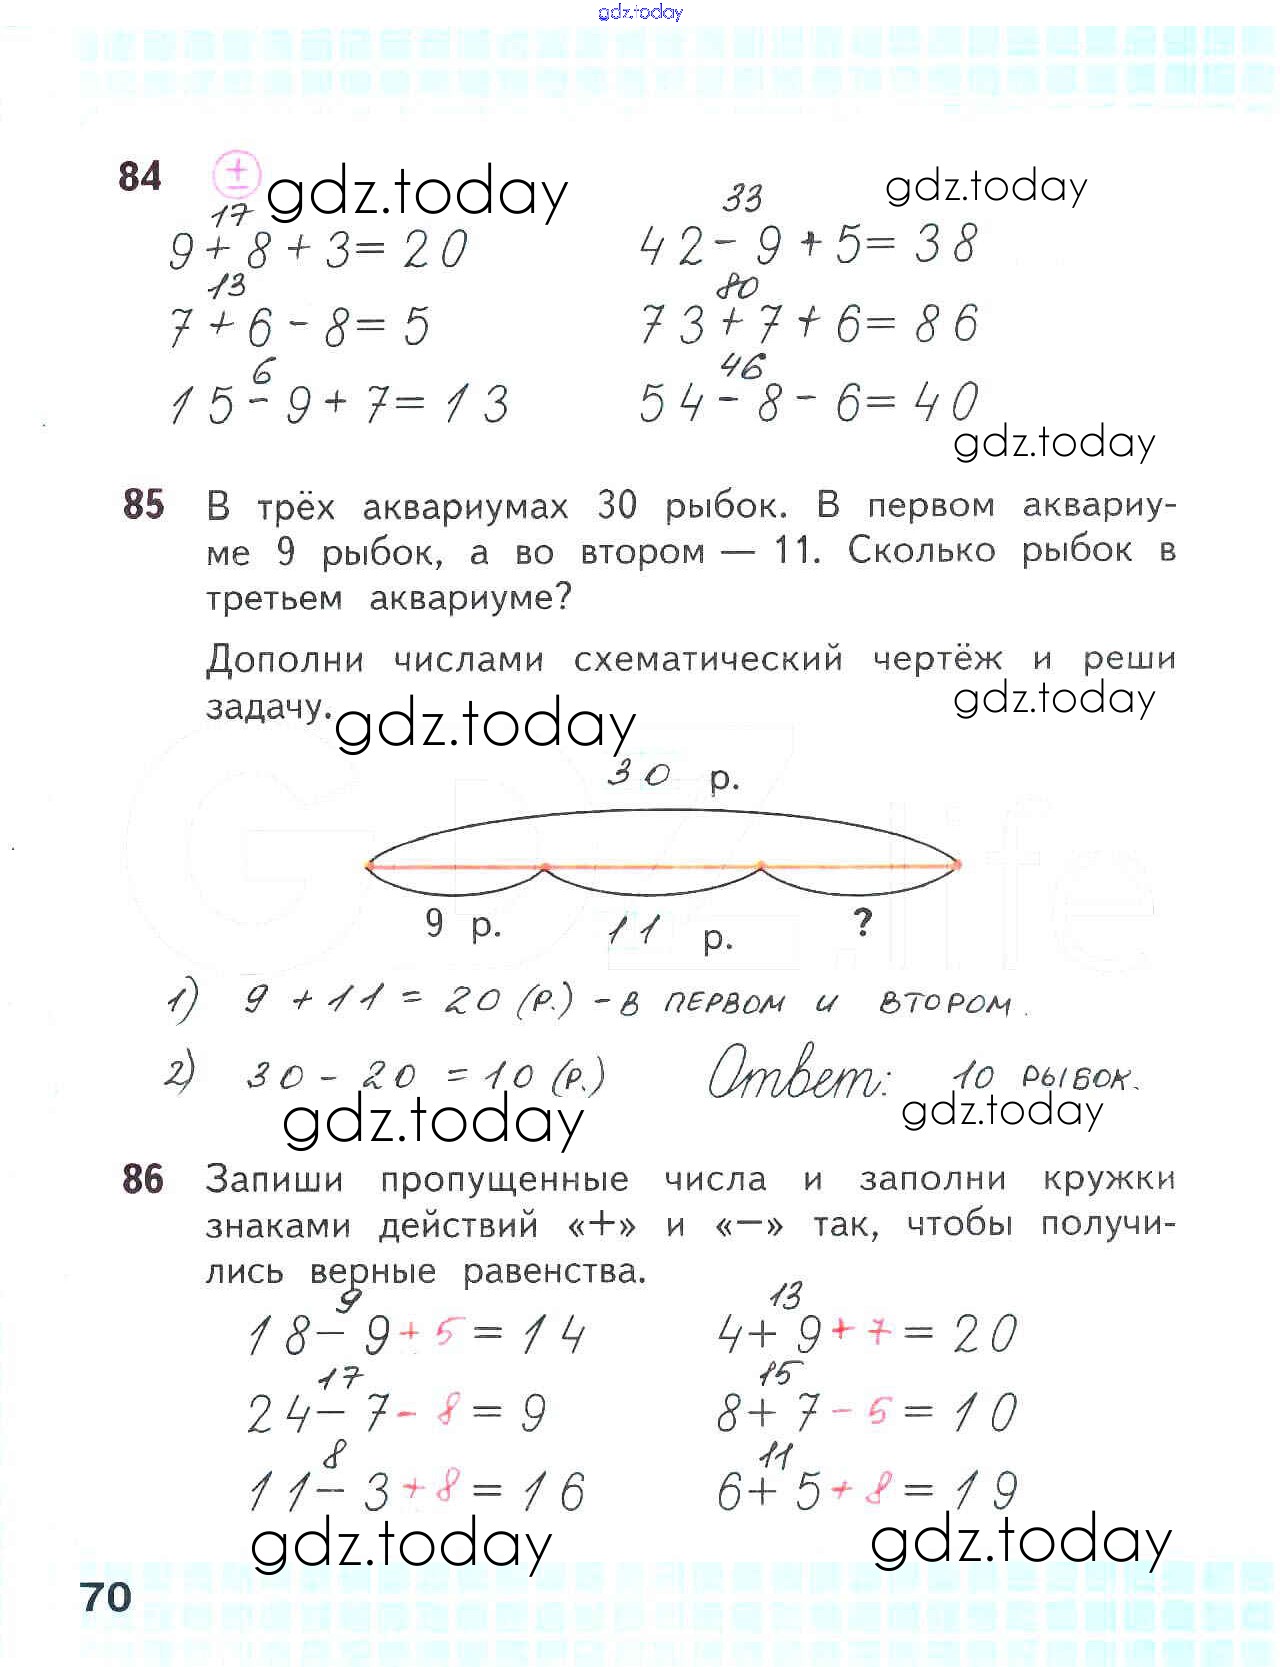 gdz.today
84 ± gdz.today gdz.today
17 33
9 + 8 + 3 = 20 42 - 9 + 5 = 38
13 80
7 + 6 - 8 = 5 73 + 7 + 6 = 86
6 46
15 - 9 + 7 = 13 54 - 8 - 6 = 40
gdz.today
85 В трёх аквариумах 30 рыбок. В первом аквариу-
ме 9 рыбок, а во втором — 11. Сколько рыбок в
третьем аквариуме?
Дополни числами схематический чертёж и реши
задачу. gdz.today gdz.today
30 р.
GDZ.life
9 р. 11 р. ?
1) 9 + 11 = 20 (р.) - в первом и втором.
2) 30 - 20 = 10 (р.) Ответ: 10 рыбок.
gdz.today gdz.today
86 Запиши пропущенные числа и заполни кружки
знаками действий «+» и «−» так, чтобы получи-
лись верные равенства.
9 13
18 - 9 + 5 = 14 4 + 9 + 7 = 20
17 15
24 - 7 - 8 = 9 8 + 7 - 5 = 10
8 11
11 - 3 + 8 = 16 6 + 5 + 8 = 19
gdz.today gdz.today
70